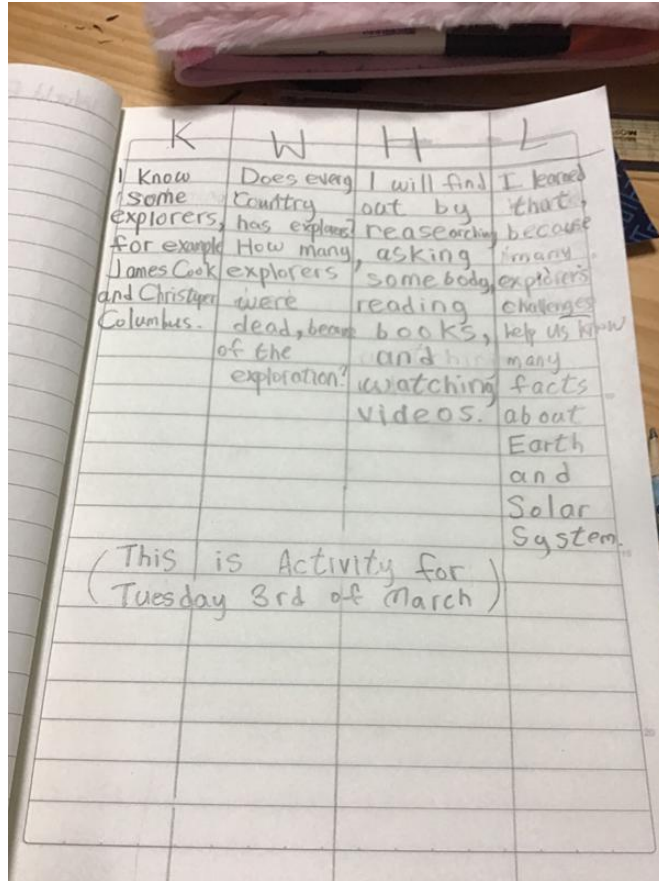 K
I Know
some
explorers,
for example
James Cook
and Christoper
Columbus.
W
Does every
Country
has explores?
How many
explorers
were
dead,
of the
exploration?
H
I will find
out by
reasearching
, asking
somebody,
reading
books,
and
watching
videos.
L
I learned
that,
because
many
explorer's
challenges
help us know
many
facts
about
Earth
and
Solar
System.
(This is Activity for
Tuesday 3rd of March)